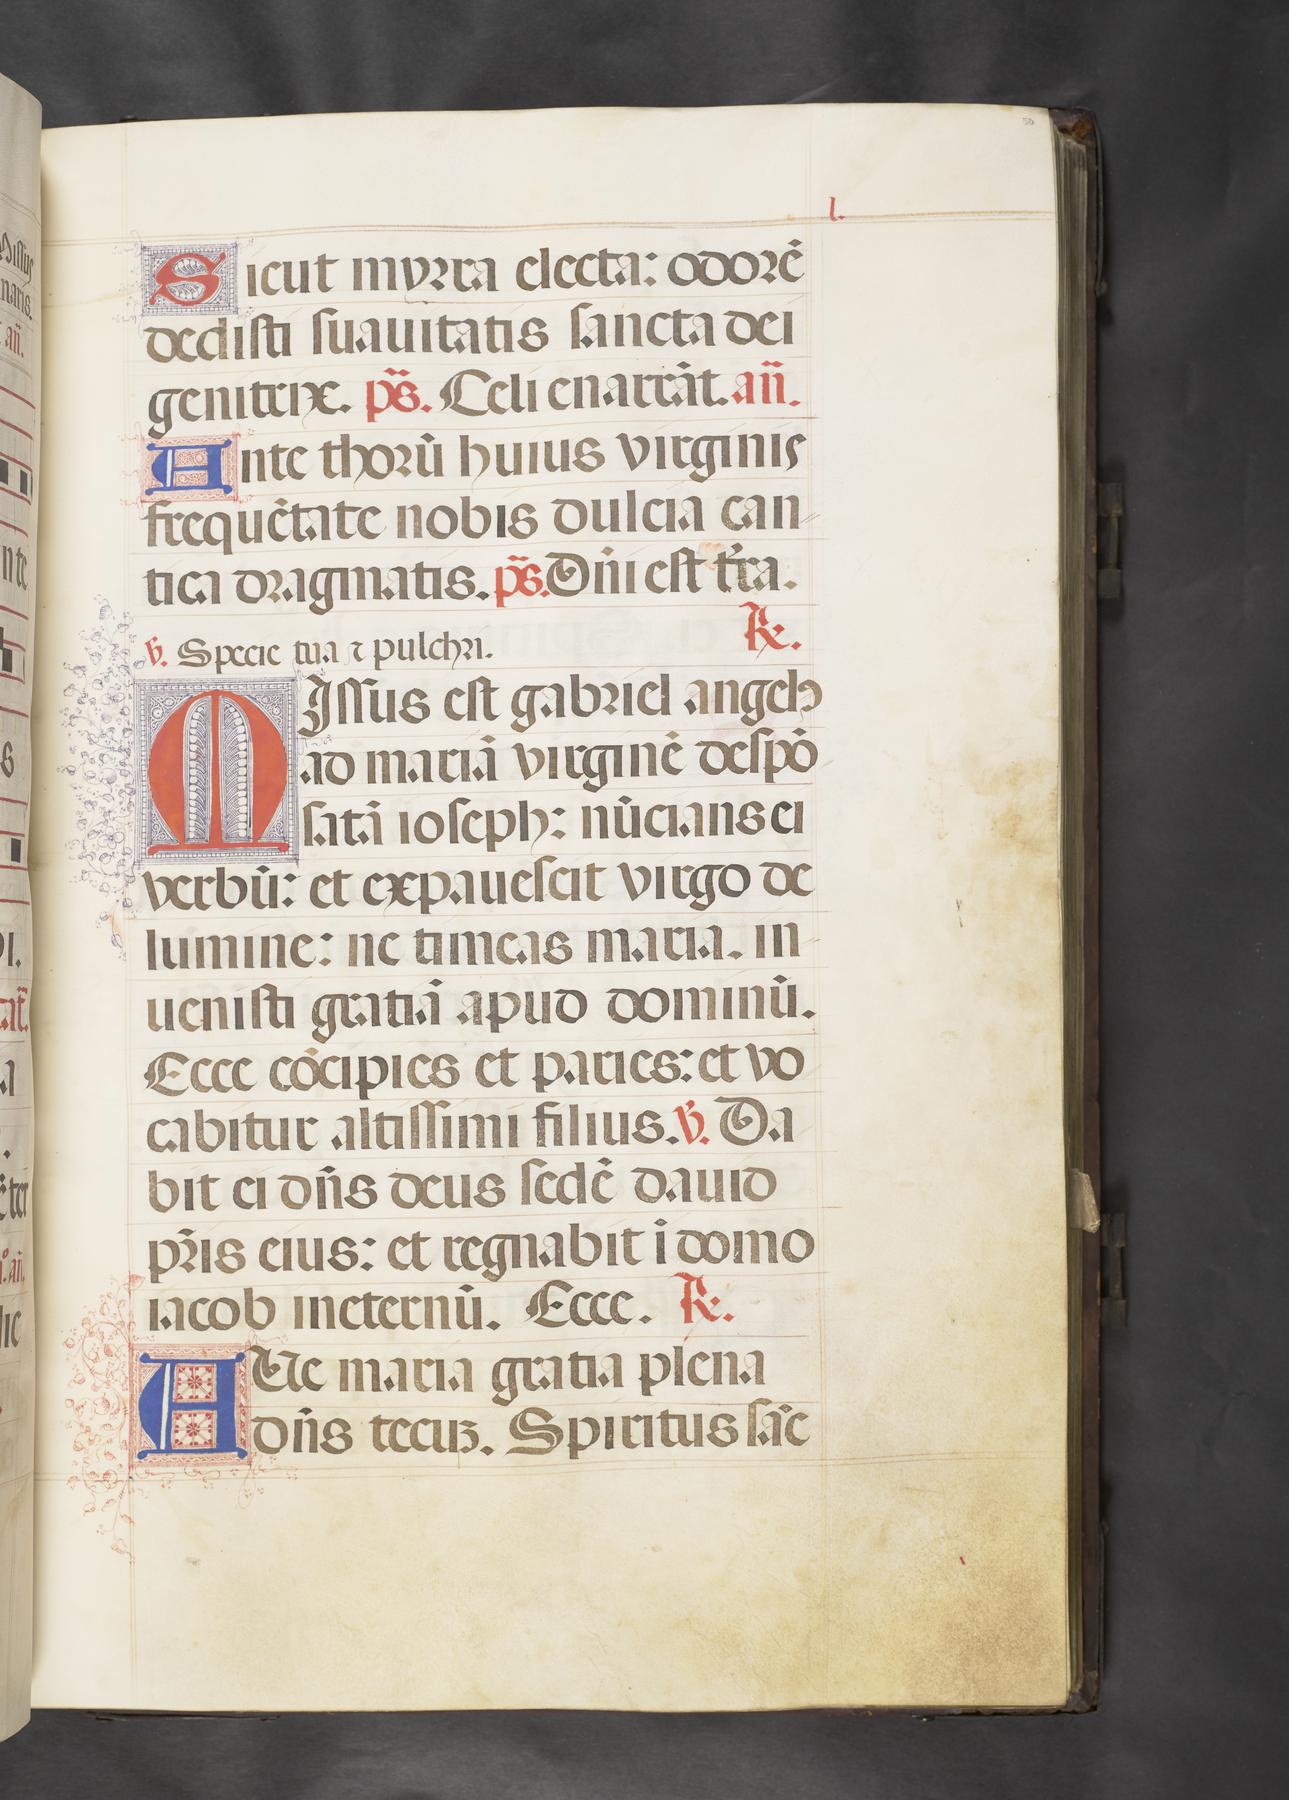 50
l.
Sicut myrra electa: odorē
dedisti suauitatis sancta dei
genitrix. ps̃. Celi enarrāt. añ.
Ante thorū huius virginis
frequētate nobis dulcia can
tica dragmatis. ps̃. Dñi est t̃ra.
℣. Specie tua ⁊ pulchri. ℟.
MIssus est gabriel angelꝰ
ad mariā virginē despō
satā ioseph: nūcians ei
verbū: et expauescit virgo de
lumine: ne timeas maria. in
uenisti gratiā apud dominū.
Ecce cōcipies et paries: et vo
cabitur altissimi filius. ℣. Da
bit ei dñs deus sedē dauid
pr̃is eius: et regnabit ī domo
iacob ineternū. Ecce. ℟.
AUe maria gratia plena
dñs tecuꝫ. Spiritus sāc